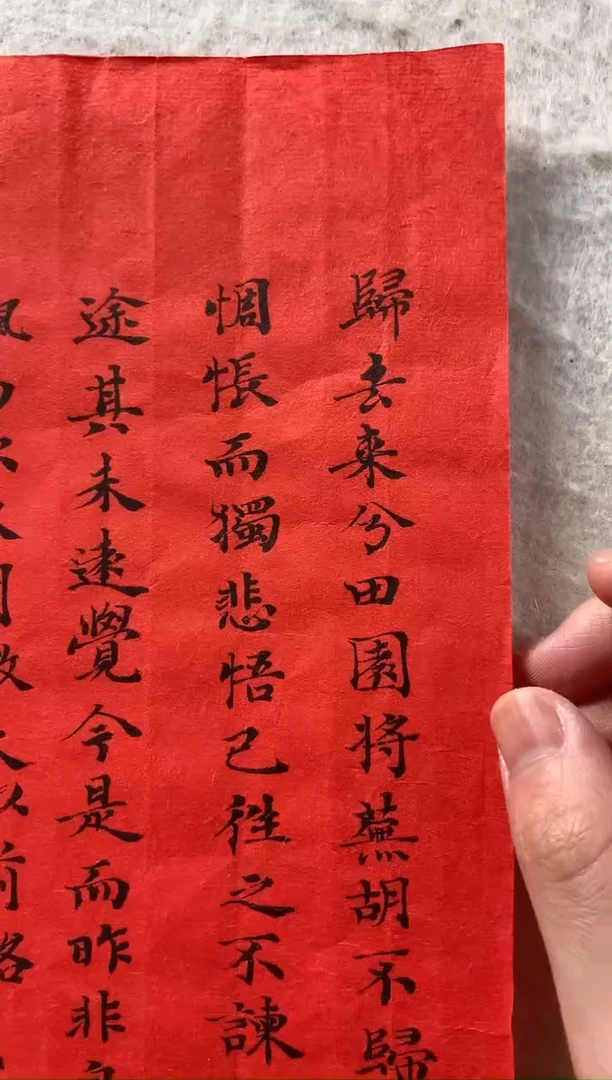 歸去来兮田園将蕪胡不歸
惆悵而獨悲悟已徃之不諫
途其未遠覺今是而昨非